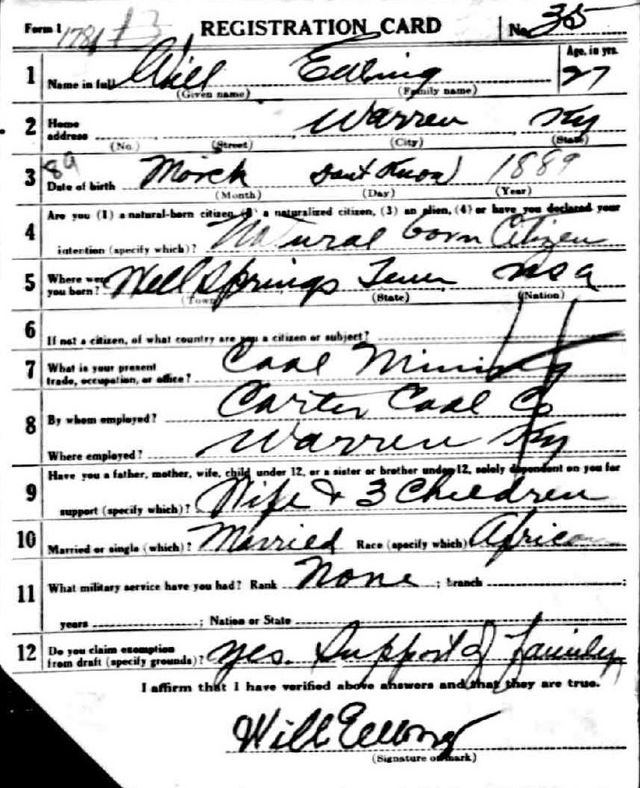 Form 1 1781 #3 REGISTRATION CARD No. 35
1 Name in full Will Ewing Age, in yrs. 27
(Given name) (Family name)
2 Home address Warren Ky
(No.) (Street) (City) (State)
89
3 Date of birth March dont Know 1889
(Month) (Day) (Year)
4 Are you (1) a natural-born citizen, (2) a naturalized citizen, (3) an alien, (4) or have you declared your
intention (specify which)? Natural born Citizen
5 Where were you born? Well Springs Tenn USA
(Town) (State) (Nation)
6 If not a citizen, of what country are you a citizen or subject?
7 What is your present trade, occupation, or office? Coal Mining
8 By whom employed? Carter Coal Co
Where employed? Warren Ky
9 Have you a father, mother, wife, child under 12, or a sister or brother under 12, solely dependent on you for
support (specify which)? Wife & 3 Children
10 Married or single (which)? Married Race (specify which) African
11 What military service have you had? Rank None ; branch ;
years ; Nation or State
12 Do you claim exemption from draft (specify grounds)? Yes. Support of family
I affirm that I have verified above answers and that they are true.
Will Ewing
(Signature or mark)